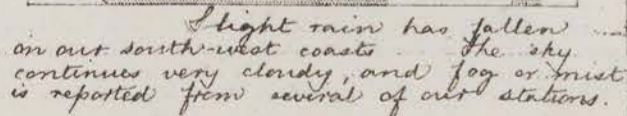 Slight rain has fallen
on our south-west coasts. The sky
continues very cloudy, and fog or mist
is reported from several of our stations.